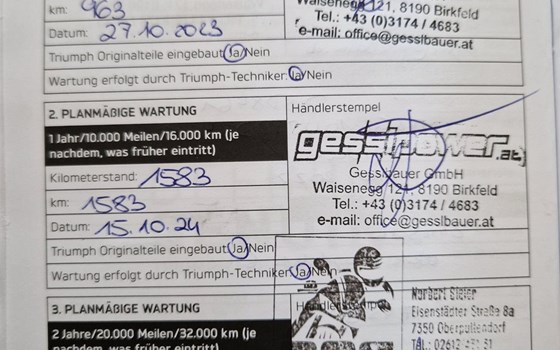 km: 963
Waisenegg 121, 8190 Birkfeld
Tel.: +43 (0)3174 / 4683
Datum: 27.10.2023
e-mail: office@gesslbauer.at
Triumph Originalteile eingebaut Ja/Nein
Wartung erfolgt durch Triumph-Techniker: Ja/Nein
2. PLANMÄßIGE WARTUNG
Händlerstempel
1 Jahr/10.000 Meilen/16.000 km (je
nachdem, was früher eintritt)
gesslpower.at
Kilometerstand: 1583
Gesslbauer GmbH
Waisenegg 121, 8190 Birkfeld
km: 1583
Tel.: +43 (0)3174 / 4683
Datum: 15.10.24
e-mail: office@gesslbauer.at
Triumph Originalteile eingebaut Ja/Nein
Wartung erfolgt durch Triumph-Techniker Ja/Nein
3. PLANMÄßIGE WARTUNG
Händlerstempel
Norbert
Eisenstädter Straße 8a
2 Jahre/20.000 Meilen/32.000 km (je
7350 Oberpullendorf
nachdem, was früher eintritt)